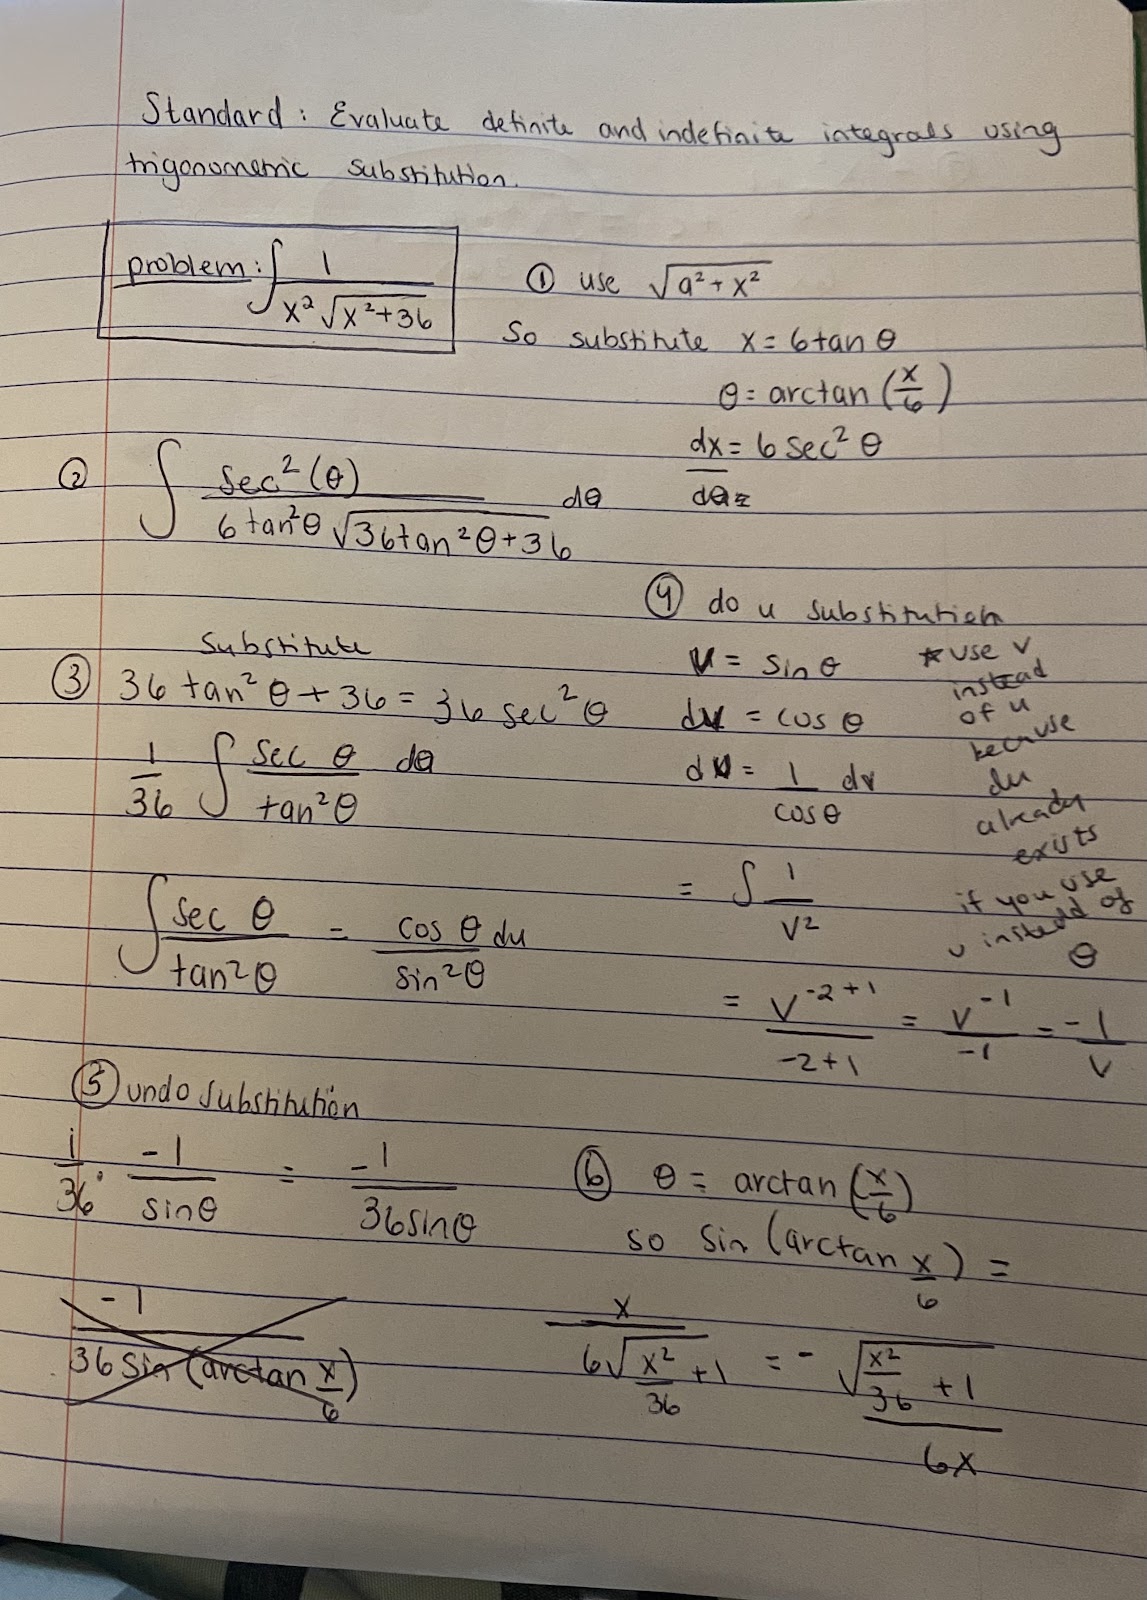 Standard: Evaluate definite and indefinite integrals using
trigonometric substitution.
problem: ∫ 1/(x² √(x²+36))
① use √(a² + x²)
So substitute x = 6tan θ
θ = arctan (x/6)
dx/dθ = 6 sec² θ
② ∫ sec²(θ)/(6 tan²θ √(36tan²θ+36)) dθ
③ Substitute
36 tan² θ + 36 = 36 sec² θ
1/36 ∫ sec θ/tan²θ dθ
∫ sec θ/tan²θ = cos θ du/sin²θ
④ do u substitution
v = sin θ
dv = cos θ
du = 1/cosθ dv
*use v
instead
of u
because
du
already
exists
if you use
u instead of
θ
= ∫ 1/v²
= v^(-2+1)/(-2+1) = v^(-1)/-1 = -1/v
⑤ undo substitution
1/36 · -1/sinθ = -1/(36sinθ)
-1/(36 sin (arctan x/6))
⑥ θ = arctan (x/6)
so sin (arctan x/6) =
x/(6√(x²/36 + 1)) = - √(x²/36 + 1)/(6x)